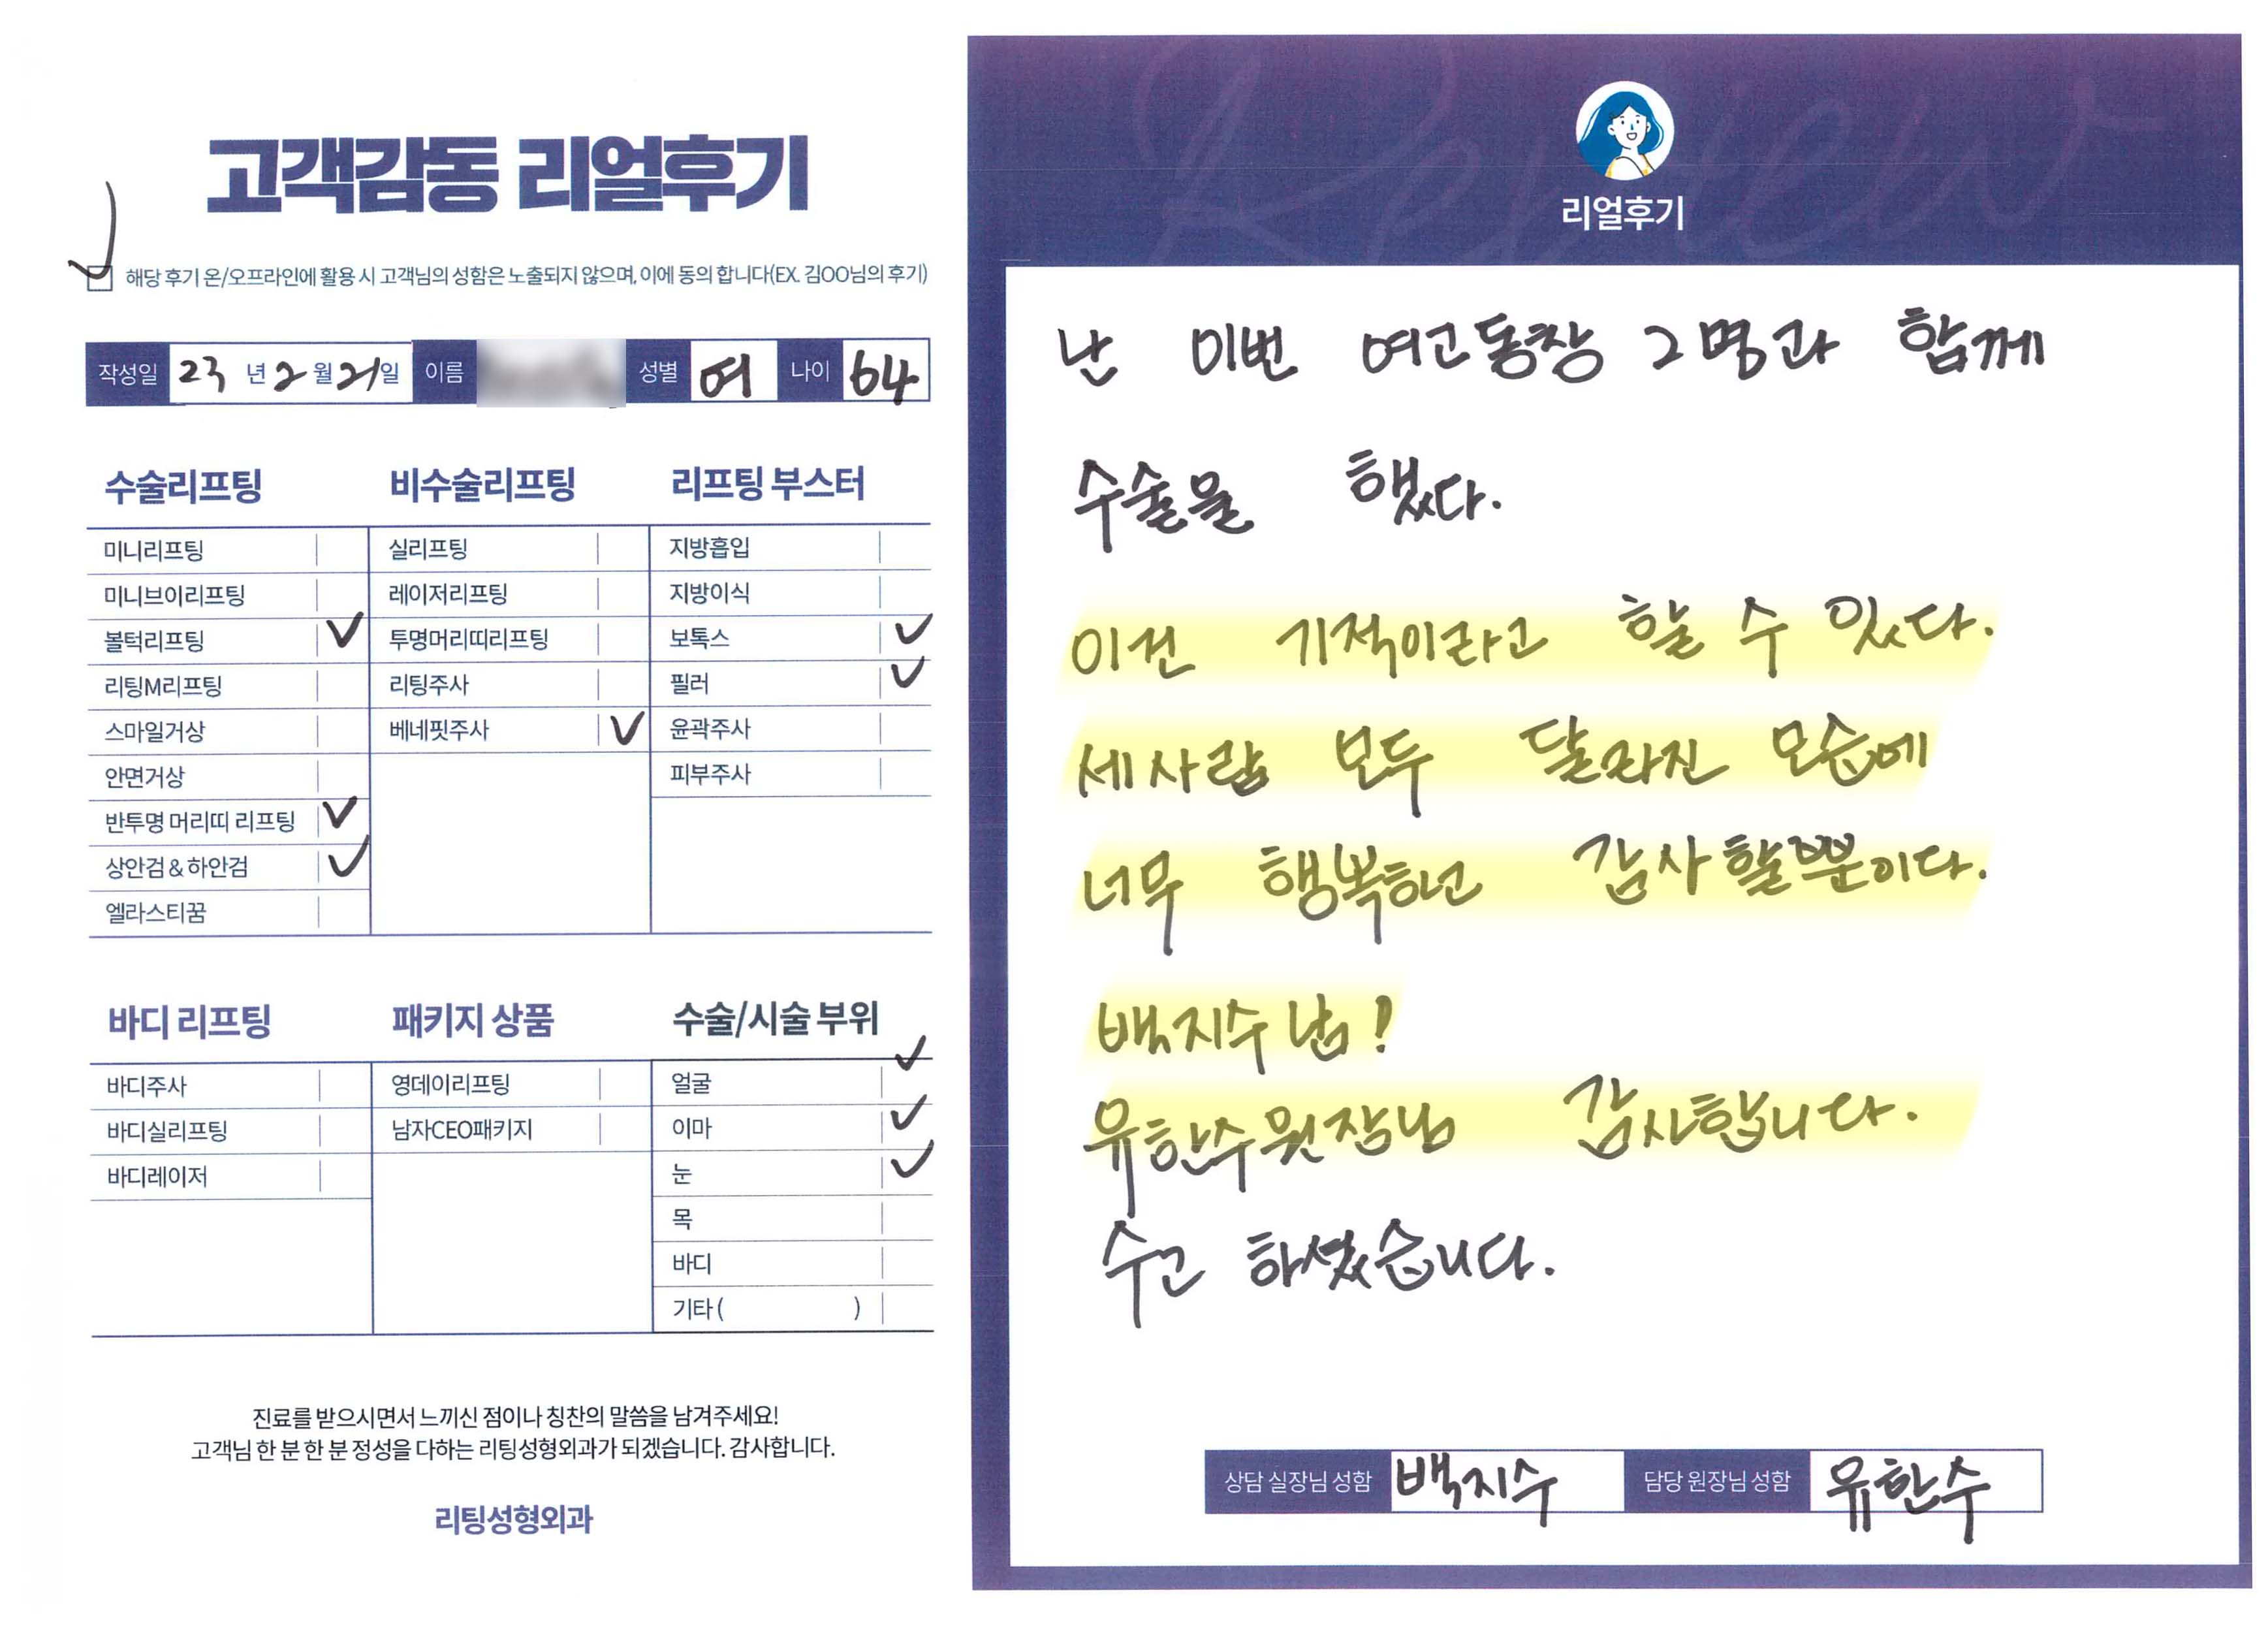 고객감동 리얼후기
해당 후기 온/오프라인에 활용 시 고객님의 성함은 노출되지 않으며, 이에 동의 합니다(EX. 김OO님의 후기)
작성일 23 년 2 월 21 일 이름 성별 여 나이 64
수술리프팅 비수술리프팅 리프팅 부스터
미니리프팅 실리프팅 지방흡입
미니브이리프팅 레이저리프팅 지방이식
볼턱리프팅 투명머리띠리프팅 보톡스
리팅M리프팅 리팅주사 필러
스마일거상 베네핏주사 윤곽주사
안면거상 피부주사
반투명 머리띠 리프팅
상안검 & 하안검
엘라스티꿈
바디 리프팅 패키지 상품 수술/시술 부위
바디주사 영데이리프팅 얼굴
바디실리프팅 남자CEO패키지 이마
바디레이저 눈
목
바디
기타 ( )
진료를 받으시면서 느끼신 점이나 칭찬의 말씀을 남겨주세요!
고객님 한 분 한 분 정성을 다하는 리팅성형외과가 되겠습니다. 감사합니다.
리팅성형외과
Review
리얼후기
난 이번 여고동창 2명과 함께
수술을 했다.
이건 기적이라고 할 수 있다.
세사람 모두 달라진 모습에
너무 행복하고 감사할뿐이다.
백지수님!
유한수원장님 감사합니다.
수고 하셨습니다.
상담 실장님 성함 백지수 담당 원장님 성함 유한수